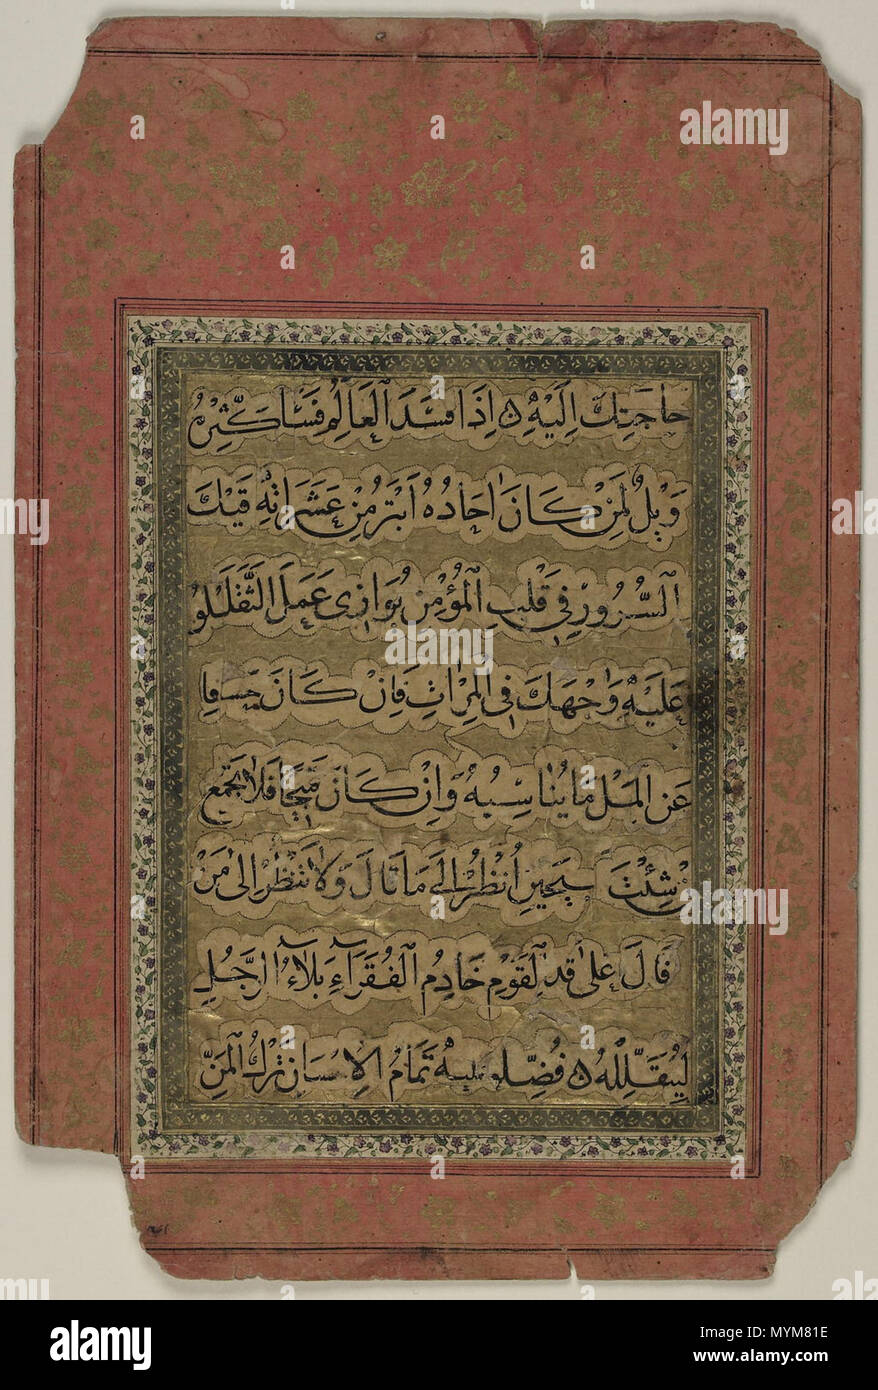 حاجتك اليه ه اذا فسد العالم فسا كثره
ويل لمن كان احاده ابتر من عشراته قيك
السرور في قلب المؤمن يوازي عمل الثقلين
عليه واجهك في المراث فان كان حسنا
عن المثل ما يناسبه وان كان قبيحا فلا تجمع
شئت انظر الى ما قال ولا تنظر الى من
قال على قد لقوم خادم الفقراء بلاء الرجل
فضل تمام الاحسان ترك المن
alamy
MYM81E
www.alamy.com